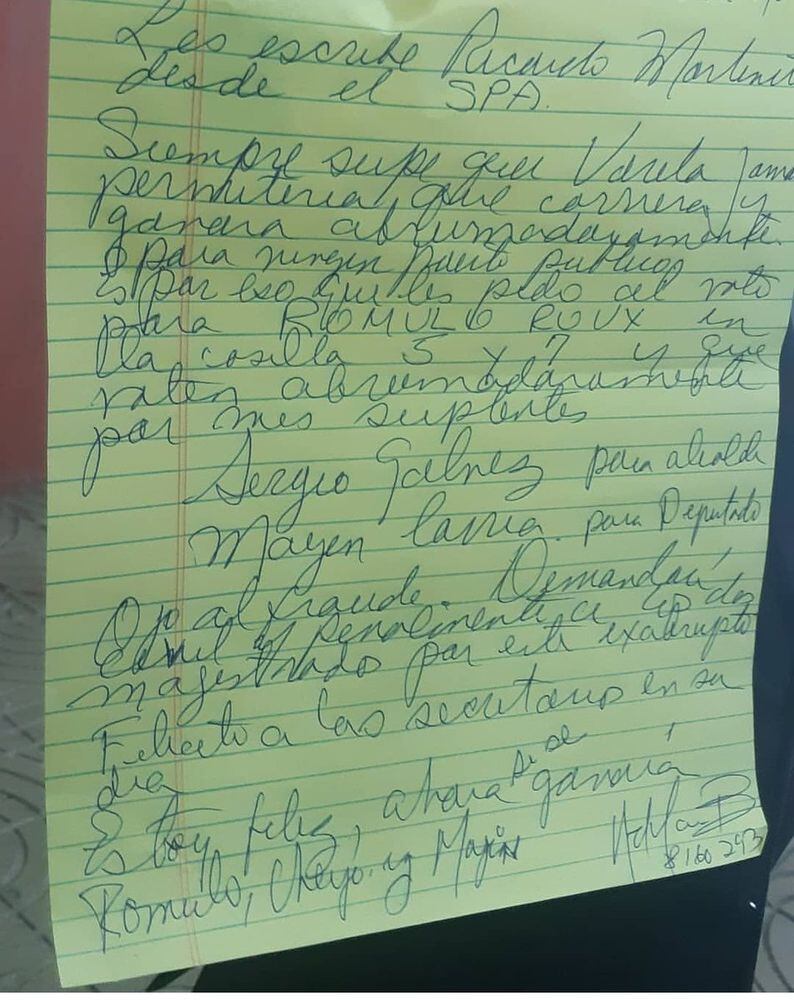 Les escribe Ricardo Martinel
desde el SPA.
Siempre supe que Varela jama
permitiria, que corriera y
ganara abrumadoramente.
para ningun puesto publico
Es por eso que les pido el voto
para ROMULO ROUX en
la casilla 5 y 7 y que
voten abrumadoramente
por mis suplentes
Sergio Galvez para alcalde
Mayer para Deputado
Ojo al fraude. Demandaré
civil y penalmente a los dos
magistrados por este exabrupto
Felicito a las secretarias en su
dia
Estoy feliz, ahora si se ganará
Romulo, Cheyo y Mayer
8160 243